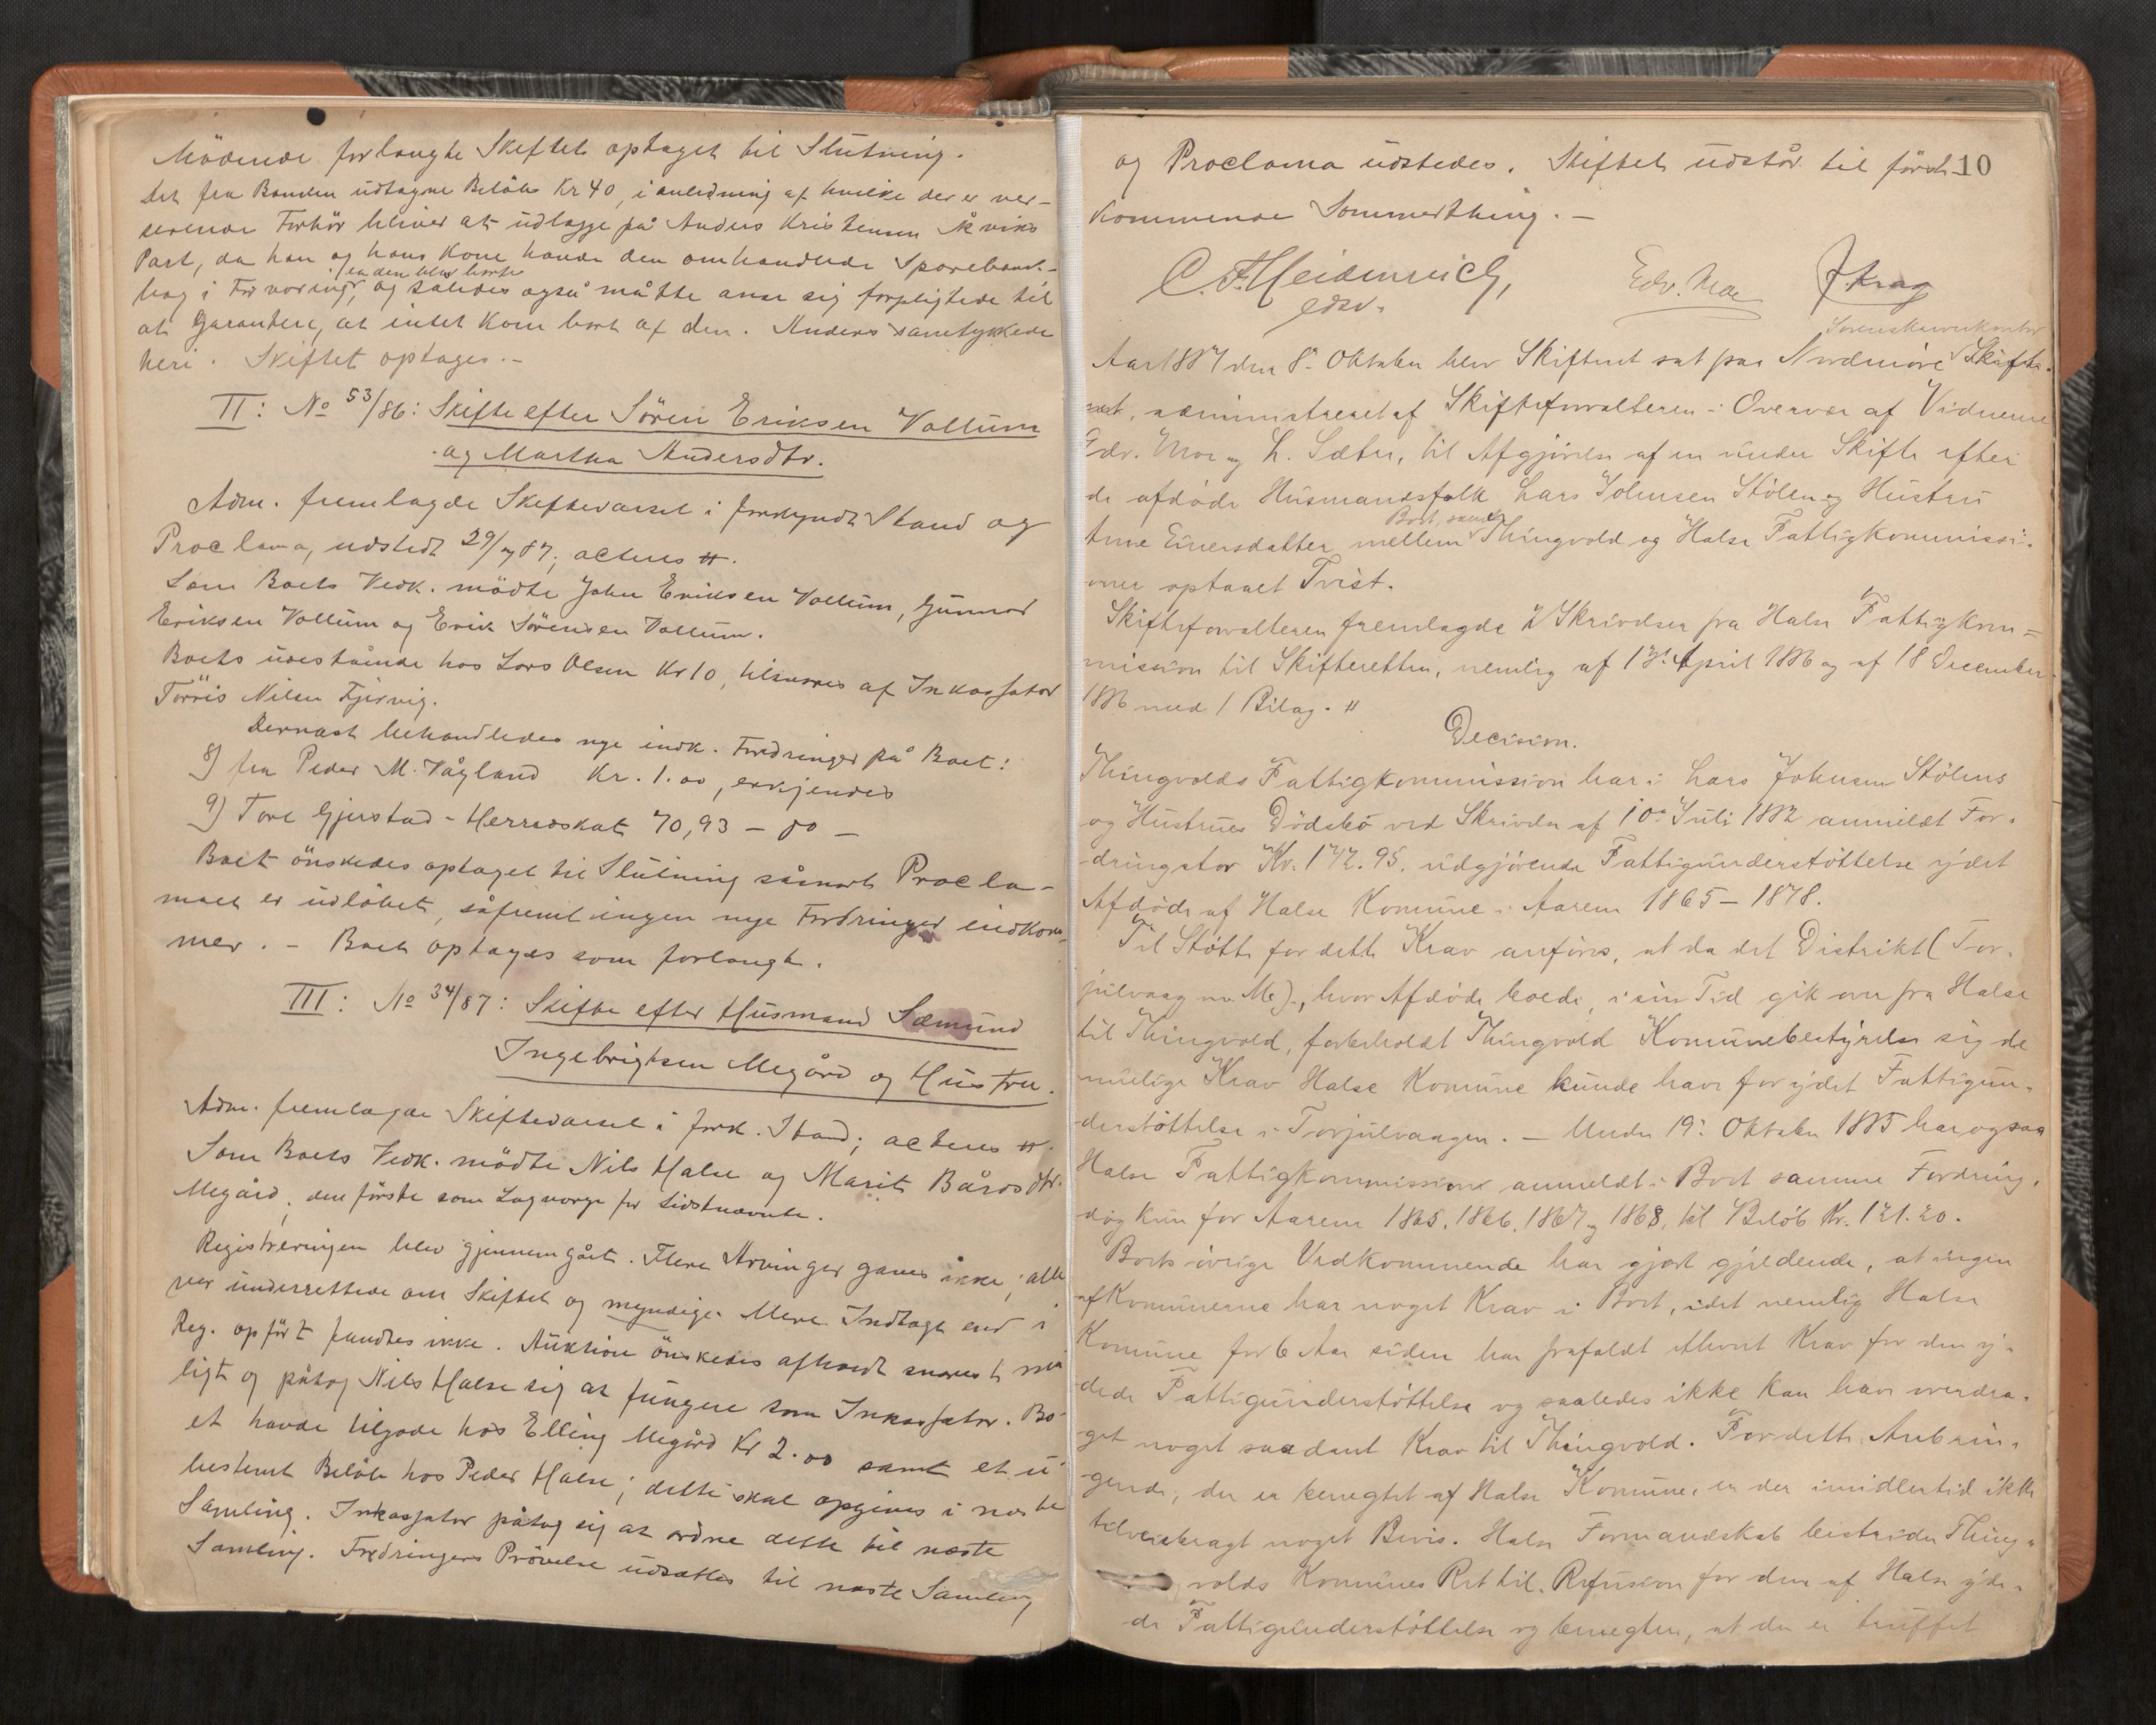 Mödende forlangte Skiftet optaget til Slutning.
Det fra Banken udtagne Beløb Kr 40, i anledning af hvilke der er ver-
serende Forhör bliver at udlægge på Anders Kristensen Åkviks
Part, da han og hans Kone havde den omhandlede Sparebank-
bog i Forvaring, da den blev borte og således også måtte anse sig forpligtede til
at Garantere, at intet kom bort af den. Anders samtykkede
heri. Skiftet optages.-
II: No 53/86: Skifte efter Sören Eriksen Vollum
og Martha Andersdtr.
Adm. fremlagde Skiftevarsel i forkyndt Stand og
Proclama, udstedt 29/ 87; acteres #.
Som Boets Vedk. mödte John Eriksen Vollum, Gunnar
Eriksen Vollum og Erik Sörensen Vollum.
Boets udestående hos Lars Olsen Kr 10, tilsvares af Inkassator
Torris Nilsen Fjervig.
Dernæst behandledes nye indk. Fordringer på Boet:
8) fra Peder M. Vågland Kr. 1.00, erkjendes
9) Tore Gjerstad - Herredskat 70,93 - do -
Boet önskedes optaget til Slutning såsnart Procla-
maet er udlöbet, såfremt ingen nye Fordringer indkom-
mer. - Boet optages som forlangt.
III: No 34/87: Skifte efter Husmand Sæmund
Ingebrigtsen Megård og Hustru.
Adm. fremlagde Skiftevarsel i fork. Stand; acteres #.
Som Boets Vedk. mödte Nils Halse og Marit Bårdsdtr.
Megård, den förste som Lagværge for Sidstnævnte.
Registreringen blev gjennemgået. Flere Arvinger gaves ikke; alle
var underrettede om Skiftet og myndige. Mere Indtægt end i
Reg. opfört fandtes ikke. Auktion önskedes afholdt snarest mu-
ligt og påtog Nils Halse sig at fungere som Inkassator. Bo-
et havde tilgode hos Elling Megård Kr 2.00 samt et u-
bestemt Beløb hos Peder Halse; dette skal opgives i næste
Samling. Inkassator påtog sig at ordne dette til næste
Samling. Fordringers Prövelse udsættes til næste Samling
og Proclama udstedes. Skiftet udstår til först- 10
kommende Sommerthing.-
C. F. Heidenreich,
edsv.
Edv. Moe
J Krag
Sorenskriverkontor
Aar 1887 den 8de Oktober blev Skifteret sat paa Nordmöre Skifte-
ret, administreret af Skifteforvalteren i Overvær af Vidnerne
Edv. Moe og L. Sæter, til Afgjörelse af en under Skifte efter
de afdöde Husmandsfolk Lars Johnsen Stölen og Hustru
Anne Einersdatter mellem Boet, samt Thingvold og Halse Fattigkommissi-
oner opstaaet Tvist.
Skifteforvalteren fremlagde 2 Skrivelser fra Halse Fattigkom-
mission til Skifteretten, nemlig af 13de April 1886 og af 18 December
1886 med 1 Bilag. #
Decision.
Thingvolds Fattigkommission har i Lars Johnsen Stölens
og Hustrues Dödsbo ved Skrivelse af 10de Juli 1882 anmeldt For-
dring stor Kr. 172.95. udgjörende Fattigunderstöttelse ydet
Afdöde af Halse Komune i Aarene 1865-1878.
Til Stötte for dette Krav anföres, at da det Distrikt (Tor-
julvaag m. M.), hvor Afdöde boede, i sin Tid gik over fra Halse
til Thingvold, forbeholdt Thingvold Komunebestyrelse sig de
mulige Krav Halse Komune kunde have for ydet Fattigun-
derstöttelse i Torjulvaagen. - Under 19de Oktober 1885 har ogsaa
Halse Fattigkommission anmeldt i Boet samme Fordring,
dog kun for Aarene 1865. 1866. 1867 og 1868, til Belöb Kr. 121.20.
Boets övrige Vedkommende har gjort gjældende, at ingen
af Komunerne har noget Krav i Boet, idet nemlig Halse
Komune for 6 Aar siden har frafaldt ethvert Krav for den y-
dede Fattigunderstöttelse og saaledes ikke kan have overdra-
get noget saadant Krav til Thingvold. For dette Anbrin-
gende, der er benegtet af Halse Komune, er der imidlertid ikke
tilveiebragt noget Bevis. Halse Formandskab bestrider Thing-
volds Komunes Ret til Refusion for den af Halse yde-
de Fattigunderstöttelse og benegter, at der er truffet